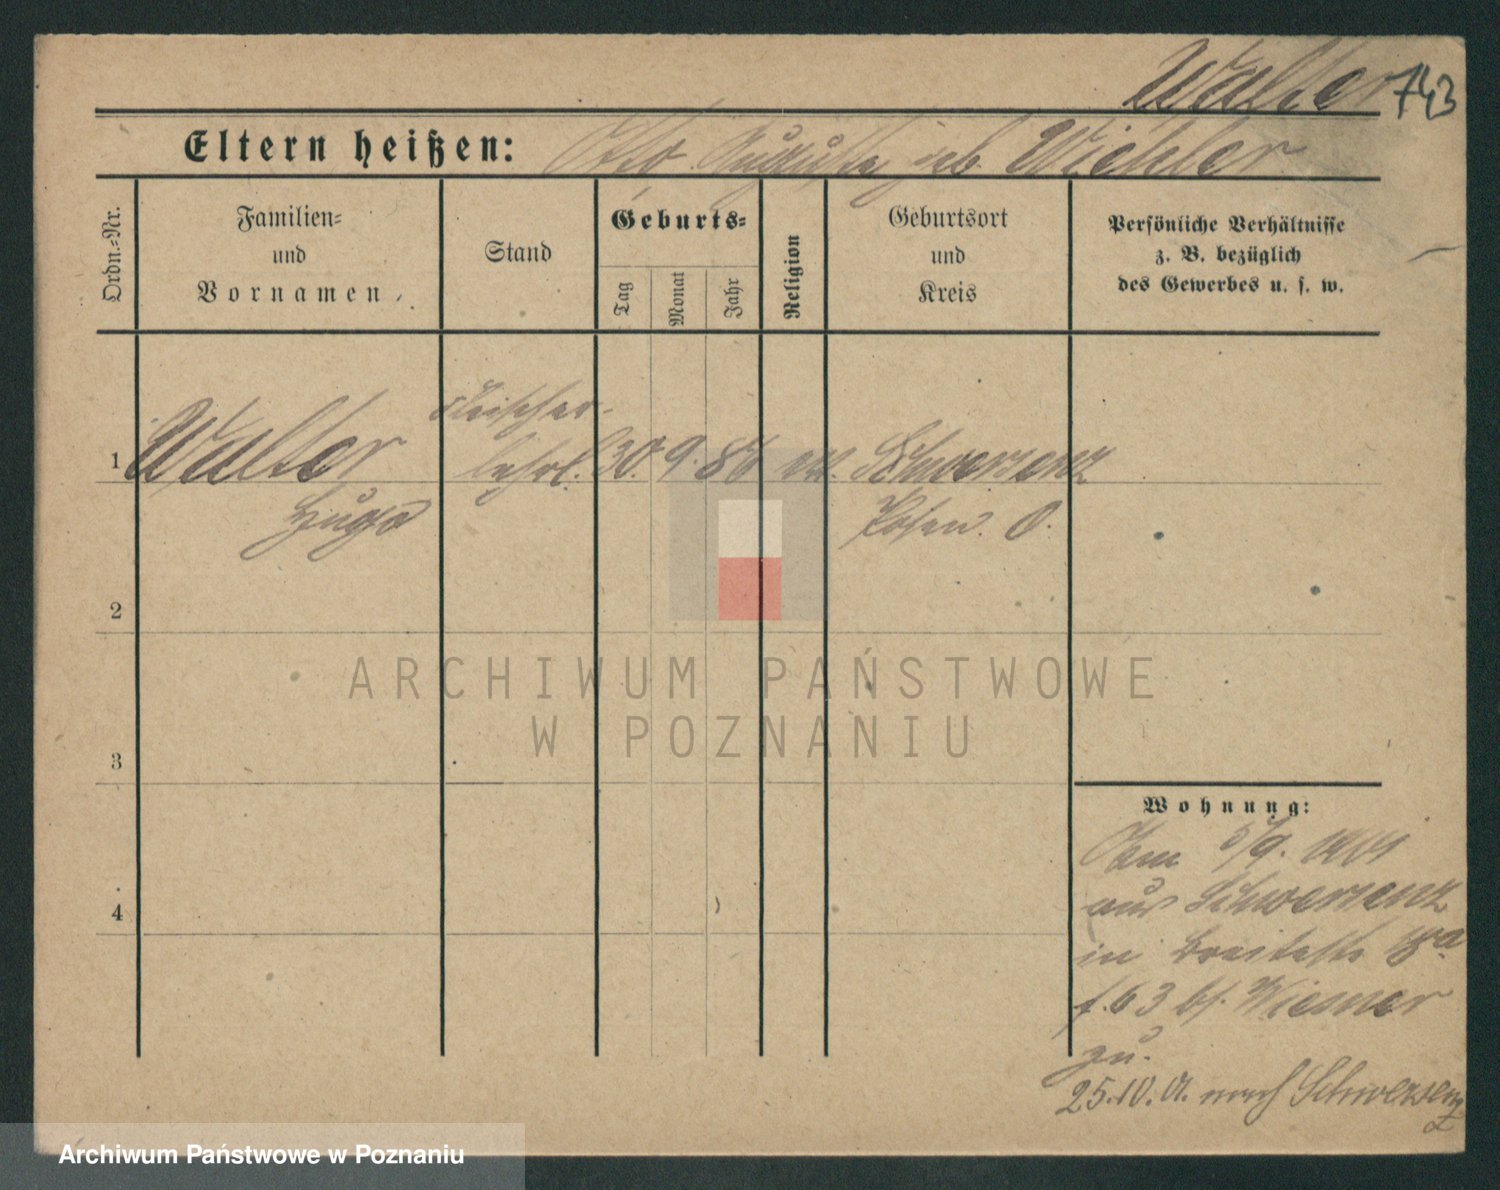 Walter 743
Eltern heißen: Otto Auguste geb. Wichler
Ordn.-Nr.
Familien-
und
Vornamen.
Stand
Geburts-
Tag
Monat
Jahr
Religion
Geburtsort
und
Kreis
Persönliche Verhältnisse
z. B. bezüglich
des Gewerbes u. s. w.
Fleischer-
1 Walter lehrl. 30. 9. 86 ev. Schwersenz
Hugo Posen. O.
2
ARCHIWUM PAŃSTWOWE
W POZNANIU
3
Wohnung:
Am 5/9. 1901
aus Schwersenz
in Breitestr 18a
f. 63 bf. Wiesner
zu.
25.10.01. nach Schwersenz
4
Archiwum Państwowe w Poznaniu